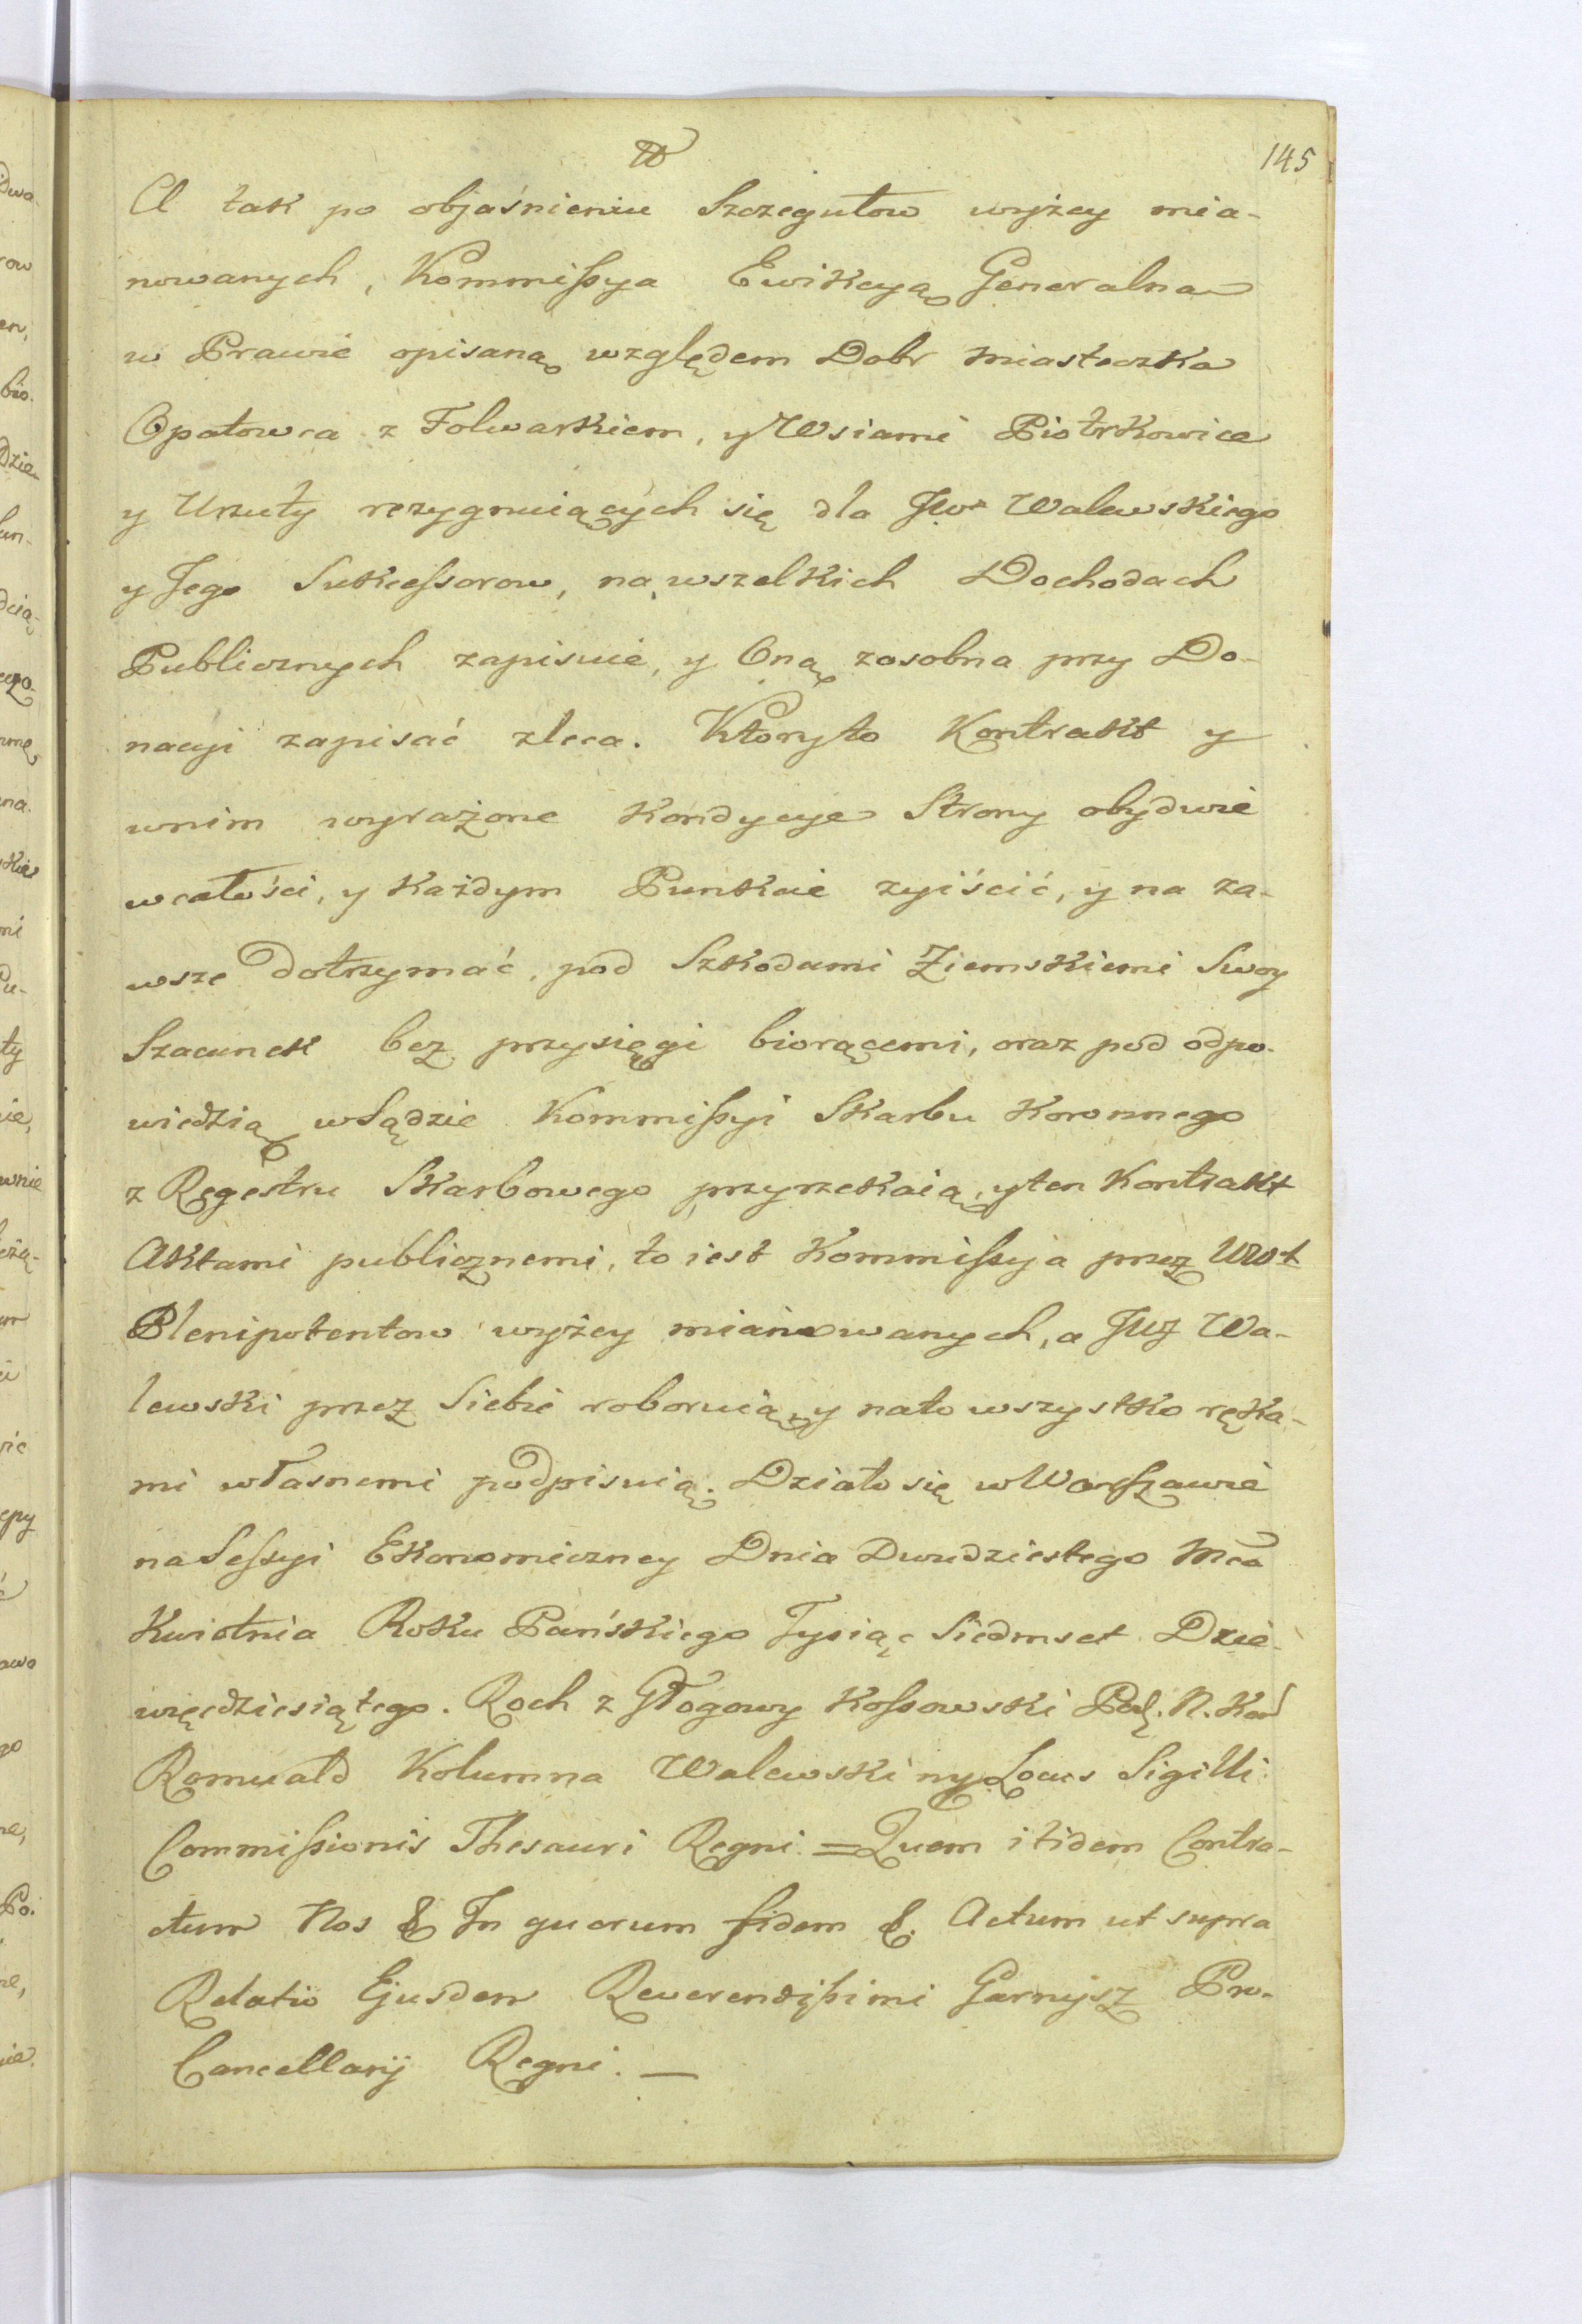 145
A tak po objaśnieniu Szczegułow wyżey mia-
nowanych, Kommissya Ewikcyą Generalna
w Prawie opisaną względem Dobr Miasteczka
Opatowca z Folwarkiem, y Wsiami Piotrkowice
y Urzuty rezygnuiących się dla JWo Walewskiego
y Jego Sukcessorow, na wszelkich Dochodach
Publicznych zapisuie, y Oną zosobna przy Do-
nacyi zapisać zleca. Ktoryto Kontrakt y
wnim wyrażone Kondycye Strony obydwie
wcałości, y Każdym Punkcie zyiścić, y na za-
wsze dotrzymać, pod Szkodami Ziemskiemi Swoy
Szacunek bez przysięgi biorącemi, oraz pod odpo-
wiedzią wSądzie Kommissyi Skarbu Koronnego
z Regestru Skarbowego przyrzekaią, yten Kontrakt
Aktami publicznemi, to iest Kommissya przez Uro
Plenipotentow wyżey mianowanych, a JWJ Wa-
lewski przez Siebie roboruią, y nato wszystko ręka-
mi własnemi podpisuią. Działo się wWarszawie
naSessyi Ekonomiczney Dnia Dwudziestego Mca
Kwietnia Roku Pańskiego Tysiąc Siedmset Dzie-
więćdziesiątego. Roch z Głogowy Kossowski Pod. N. Kor
Romuald Kolumna Walewski mp Locus Sigilli
Commissionis Thesauri Regni = Quem itidem Contra-
ctum Nos & In quorum fidem &. Actum ut supra
Relatio Ejusdem Reverendissimi Garnysz Pro-
Cancellarij Regni. —